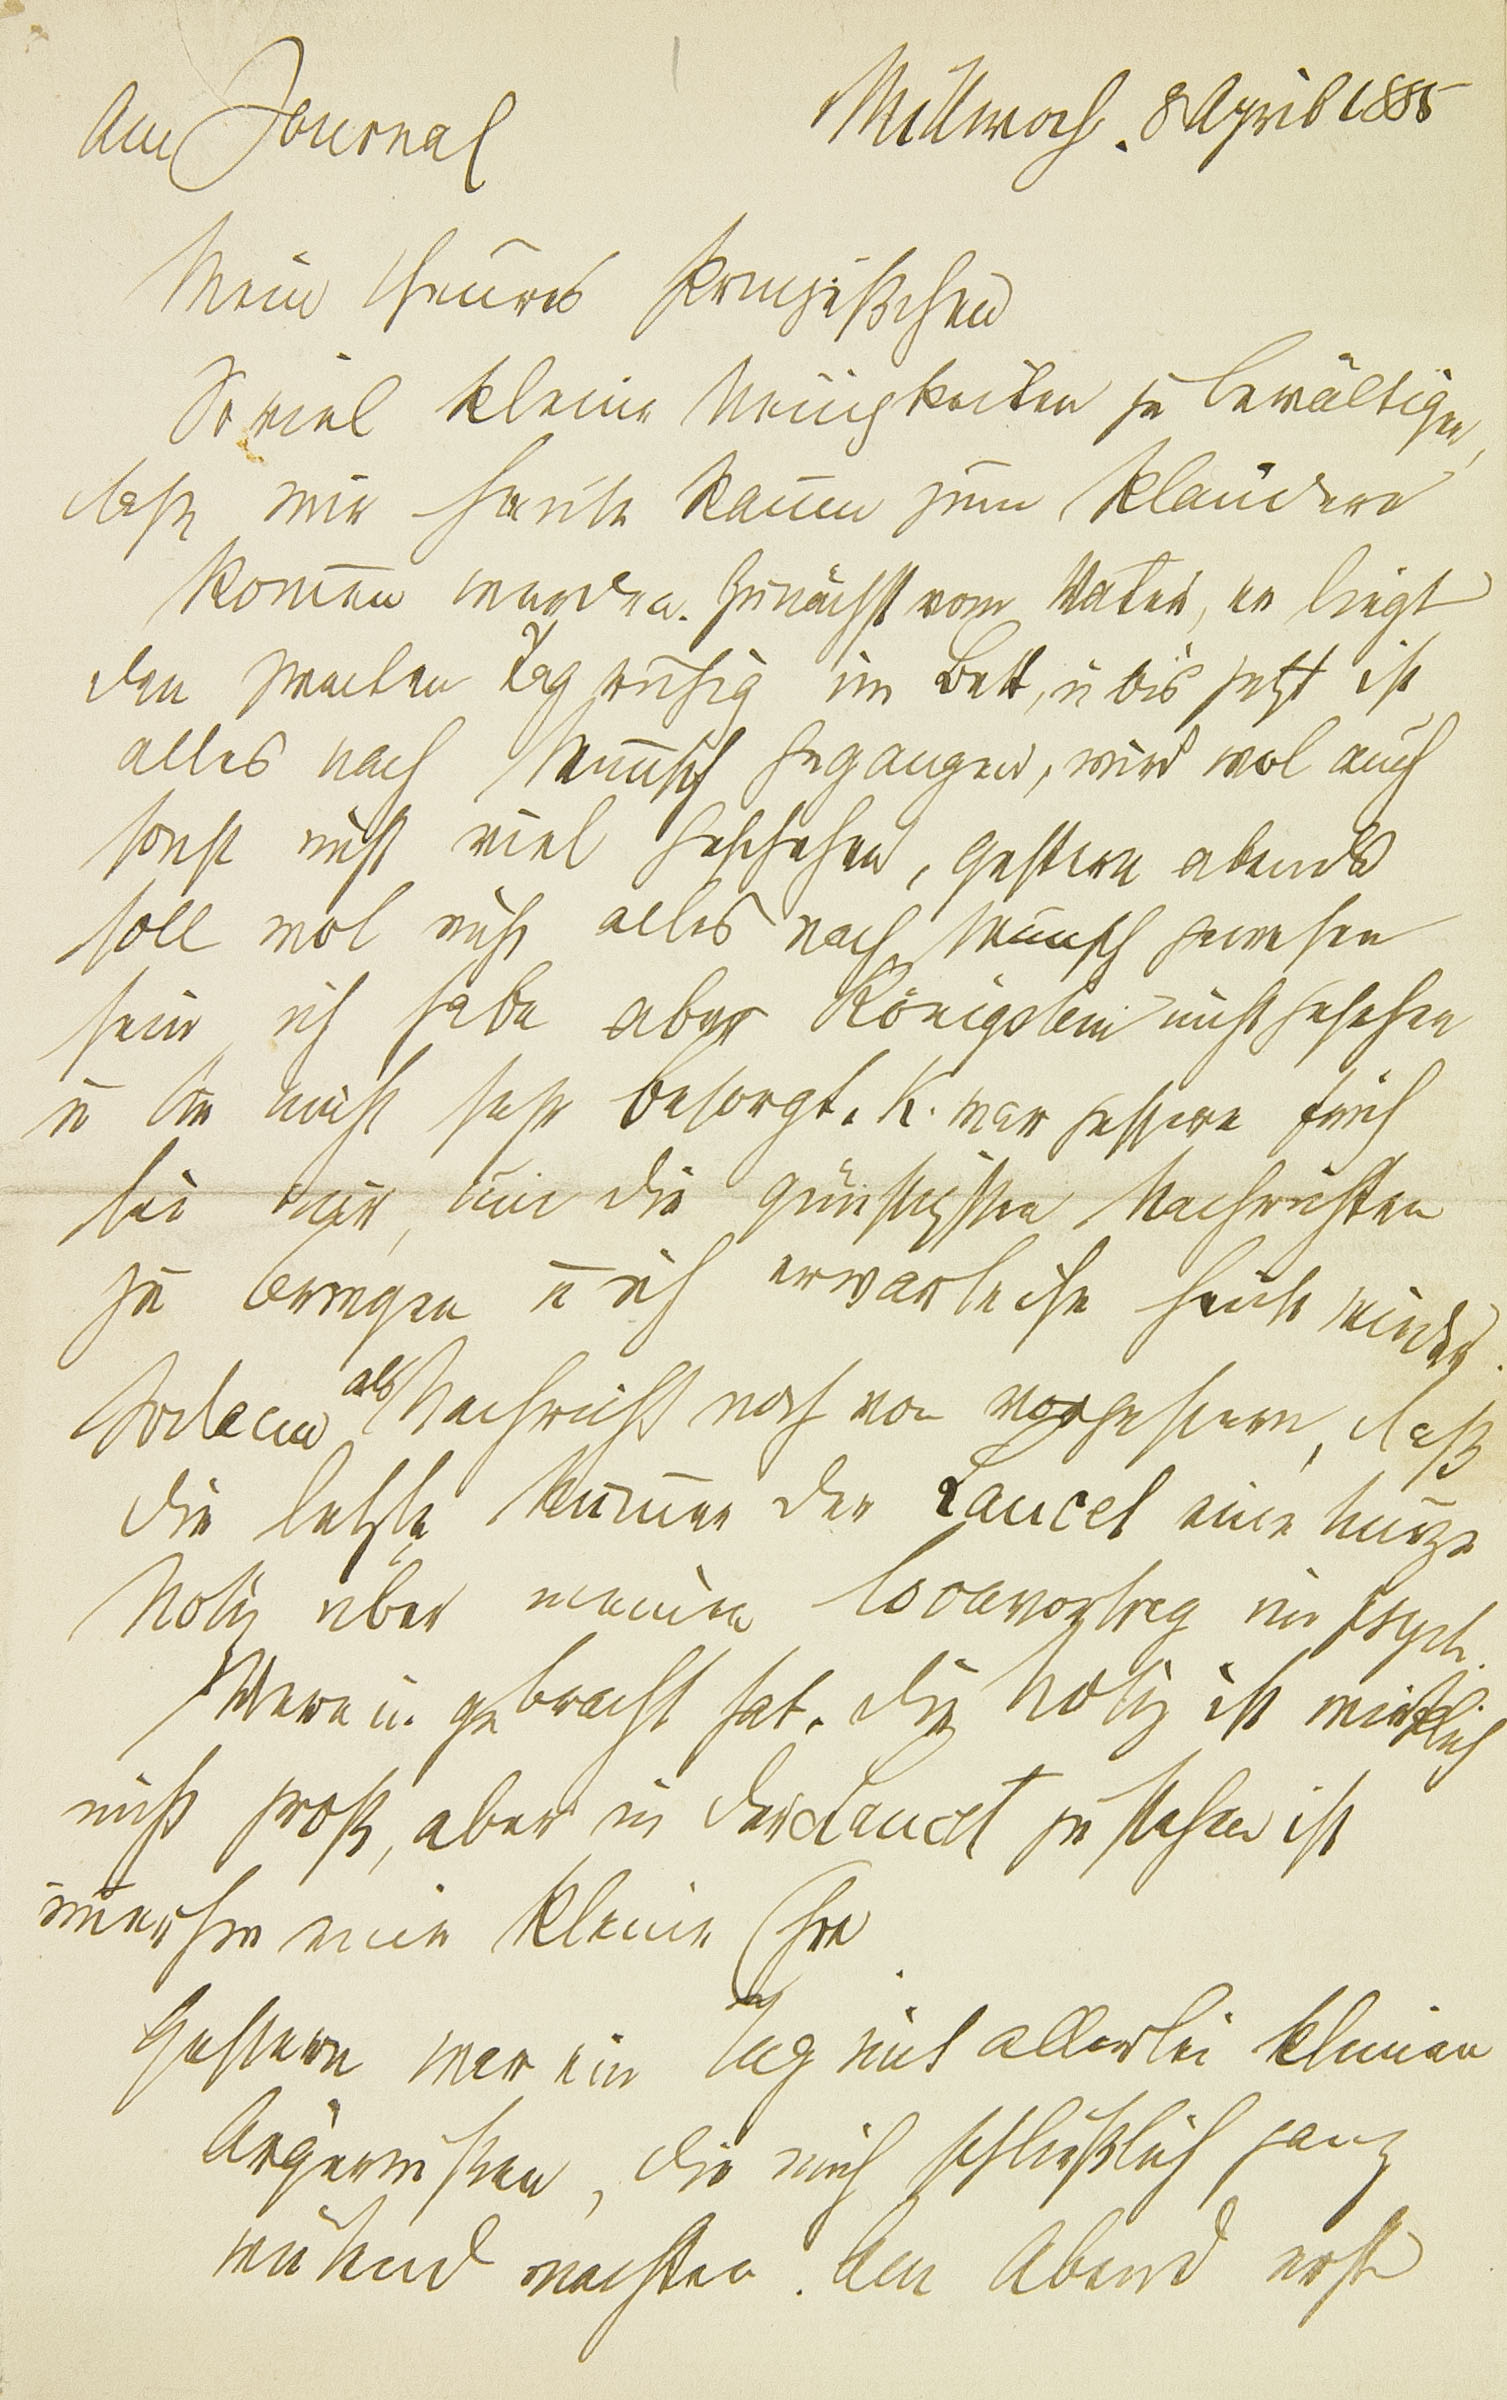 Am Journal
Mittwoch. 8 April 1885
Mein theures Prinzeßchen
Soviel kleine Neuigkeiten zu bewältigen,
daß wir heute kaum zum Plaudern
kom̄en werden. Zunächst vom Vater, er liegt
den zweiten Tag ruhig im Bett, u bis jetzt ist
alles nach Wunsch gegangen, wird wol auch
sonst nicht viel geschehen, gestern abends
soll wol nicht alles nach Wunsch gewesen
sein, ich habe aber Königstein nicht gesehen
u bin nicht sehr besorgt. K. war gestern früh
bei mir, um die günstigsten Nachrichten
zu bringen u ich erwarte ihn heute wieder.
Sodann als Nachricht noch von vorgestern, daß
die letzte Num̄er der Lancet eine kurze
Notiz über meinen Cocavortrag im psych.
Verein gebracht hat. Die Notiz ist wirklich
nicht groß, aber in der Lancet zu stehen ist
im̄erhin eine kleine Ehre
Gestern war ein Tag mit allerlei kleinen
Ärgernissen, die mich schließlich ganz
wütend machten. Am Abend erst